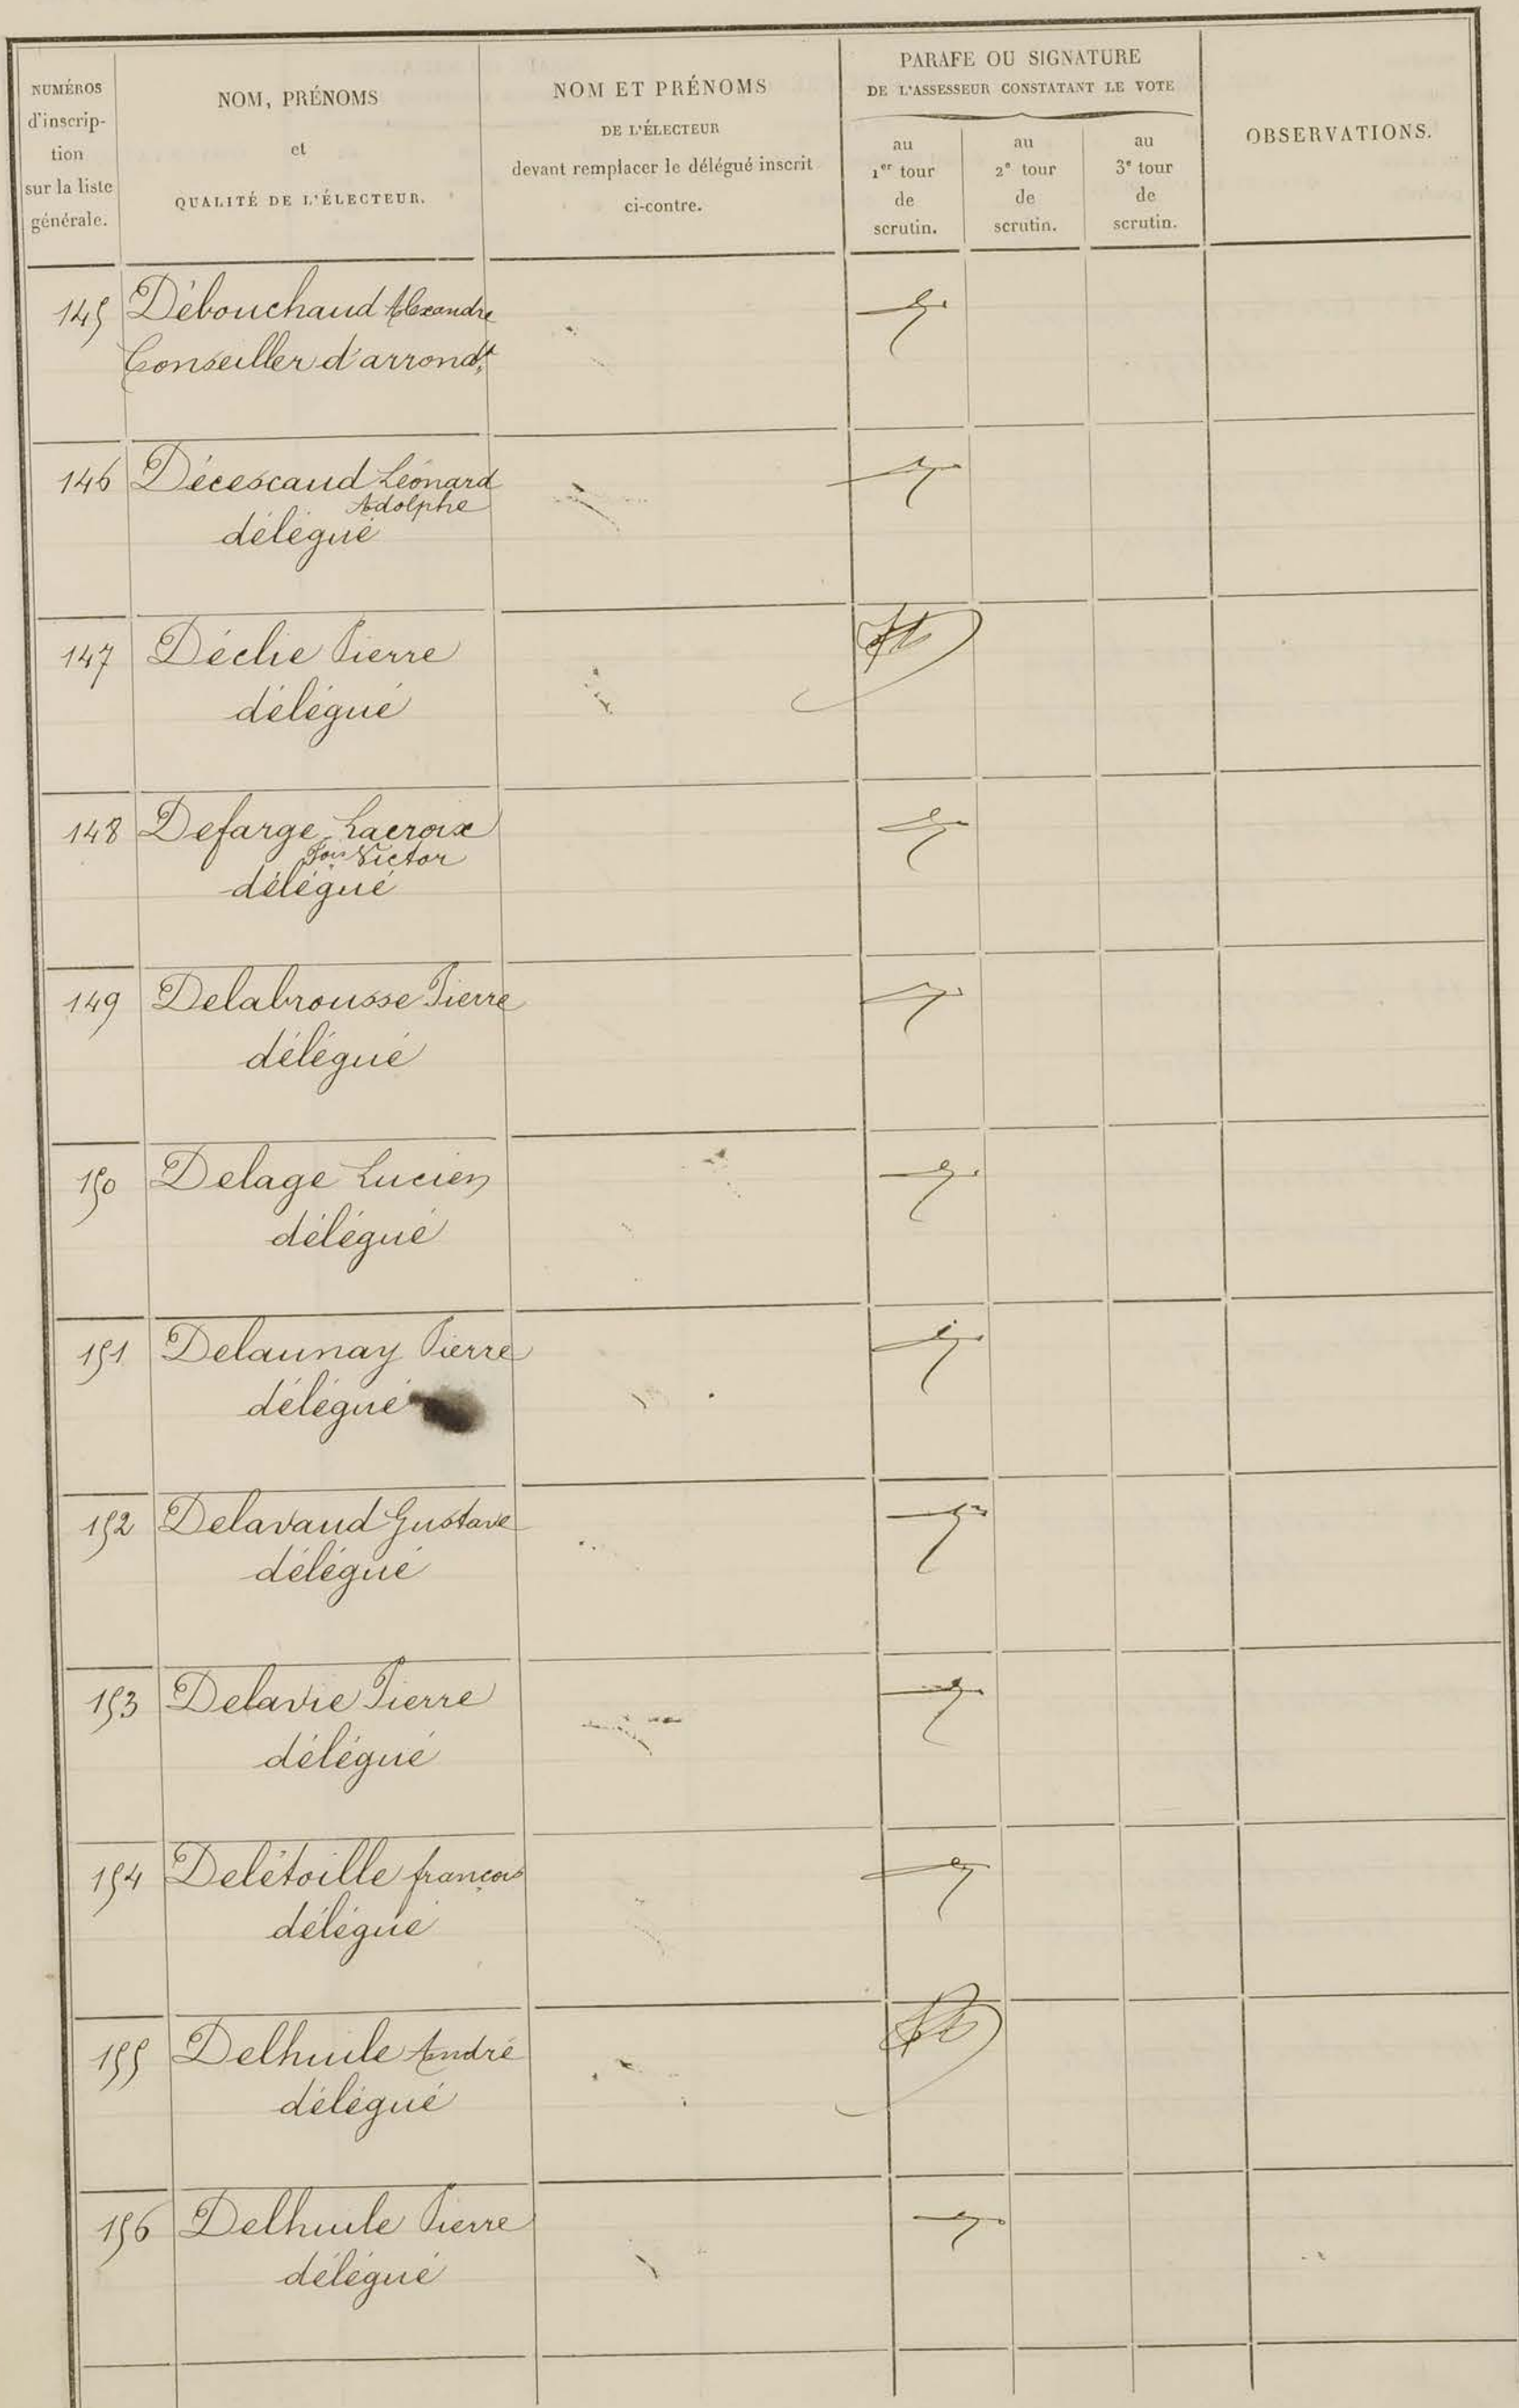 NUMÉROS
d'inscrip-
tion
sur la liste
générale.
NOM, PRÉNOMS
et
QUALITÉ DE L'ÉLECTEUR.
NOM ET PRÉNOMS
DE L'ÉLECTEUR
devant remplacer le délégué inscrit
ci-contre.
PARAFE OU SIGNATURE
DE L'ASSESSEUR CONSTATANT LE VOTE
au
1er tour
de
scrutin.
au
2e tour
de
scrutin.
au
3e tour
de
scrutin.
OBSERVATIONS.
145 Débouchaud Alexandre
Conseiller d'arrondt
146 Décescaud Léonard
Adolphe
délégué
147 Déclie Pierre
délégué
148 Defarge-Lacroix
Fois Victor
délégué
149 Delabrousse Pierre
délégué
150 Delage Lucien
délégué
151 Delaunay Pierre
délégué
152 Delavaud Gustave
délégué
153 Delavie Pierre
délégué
154 Delétoille françois
délégué
155 Delhuile André
délégué
156 Delhuile Pierre
délégué